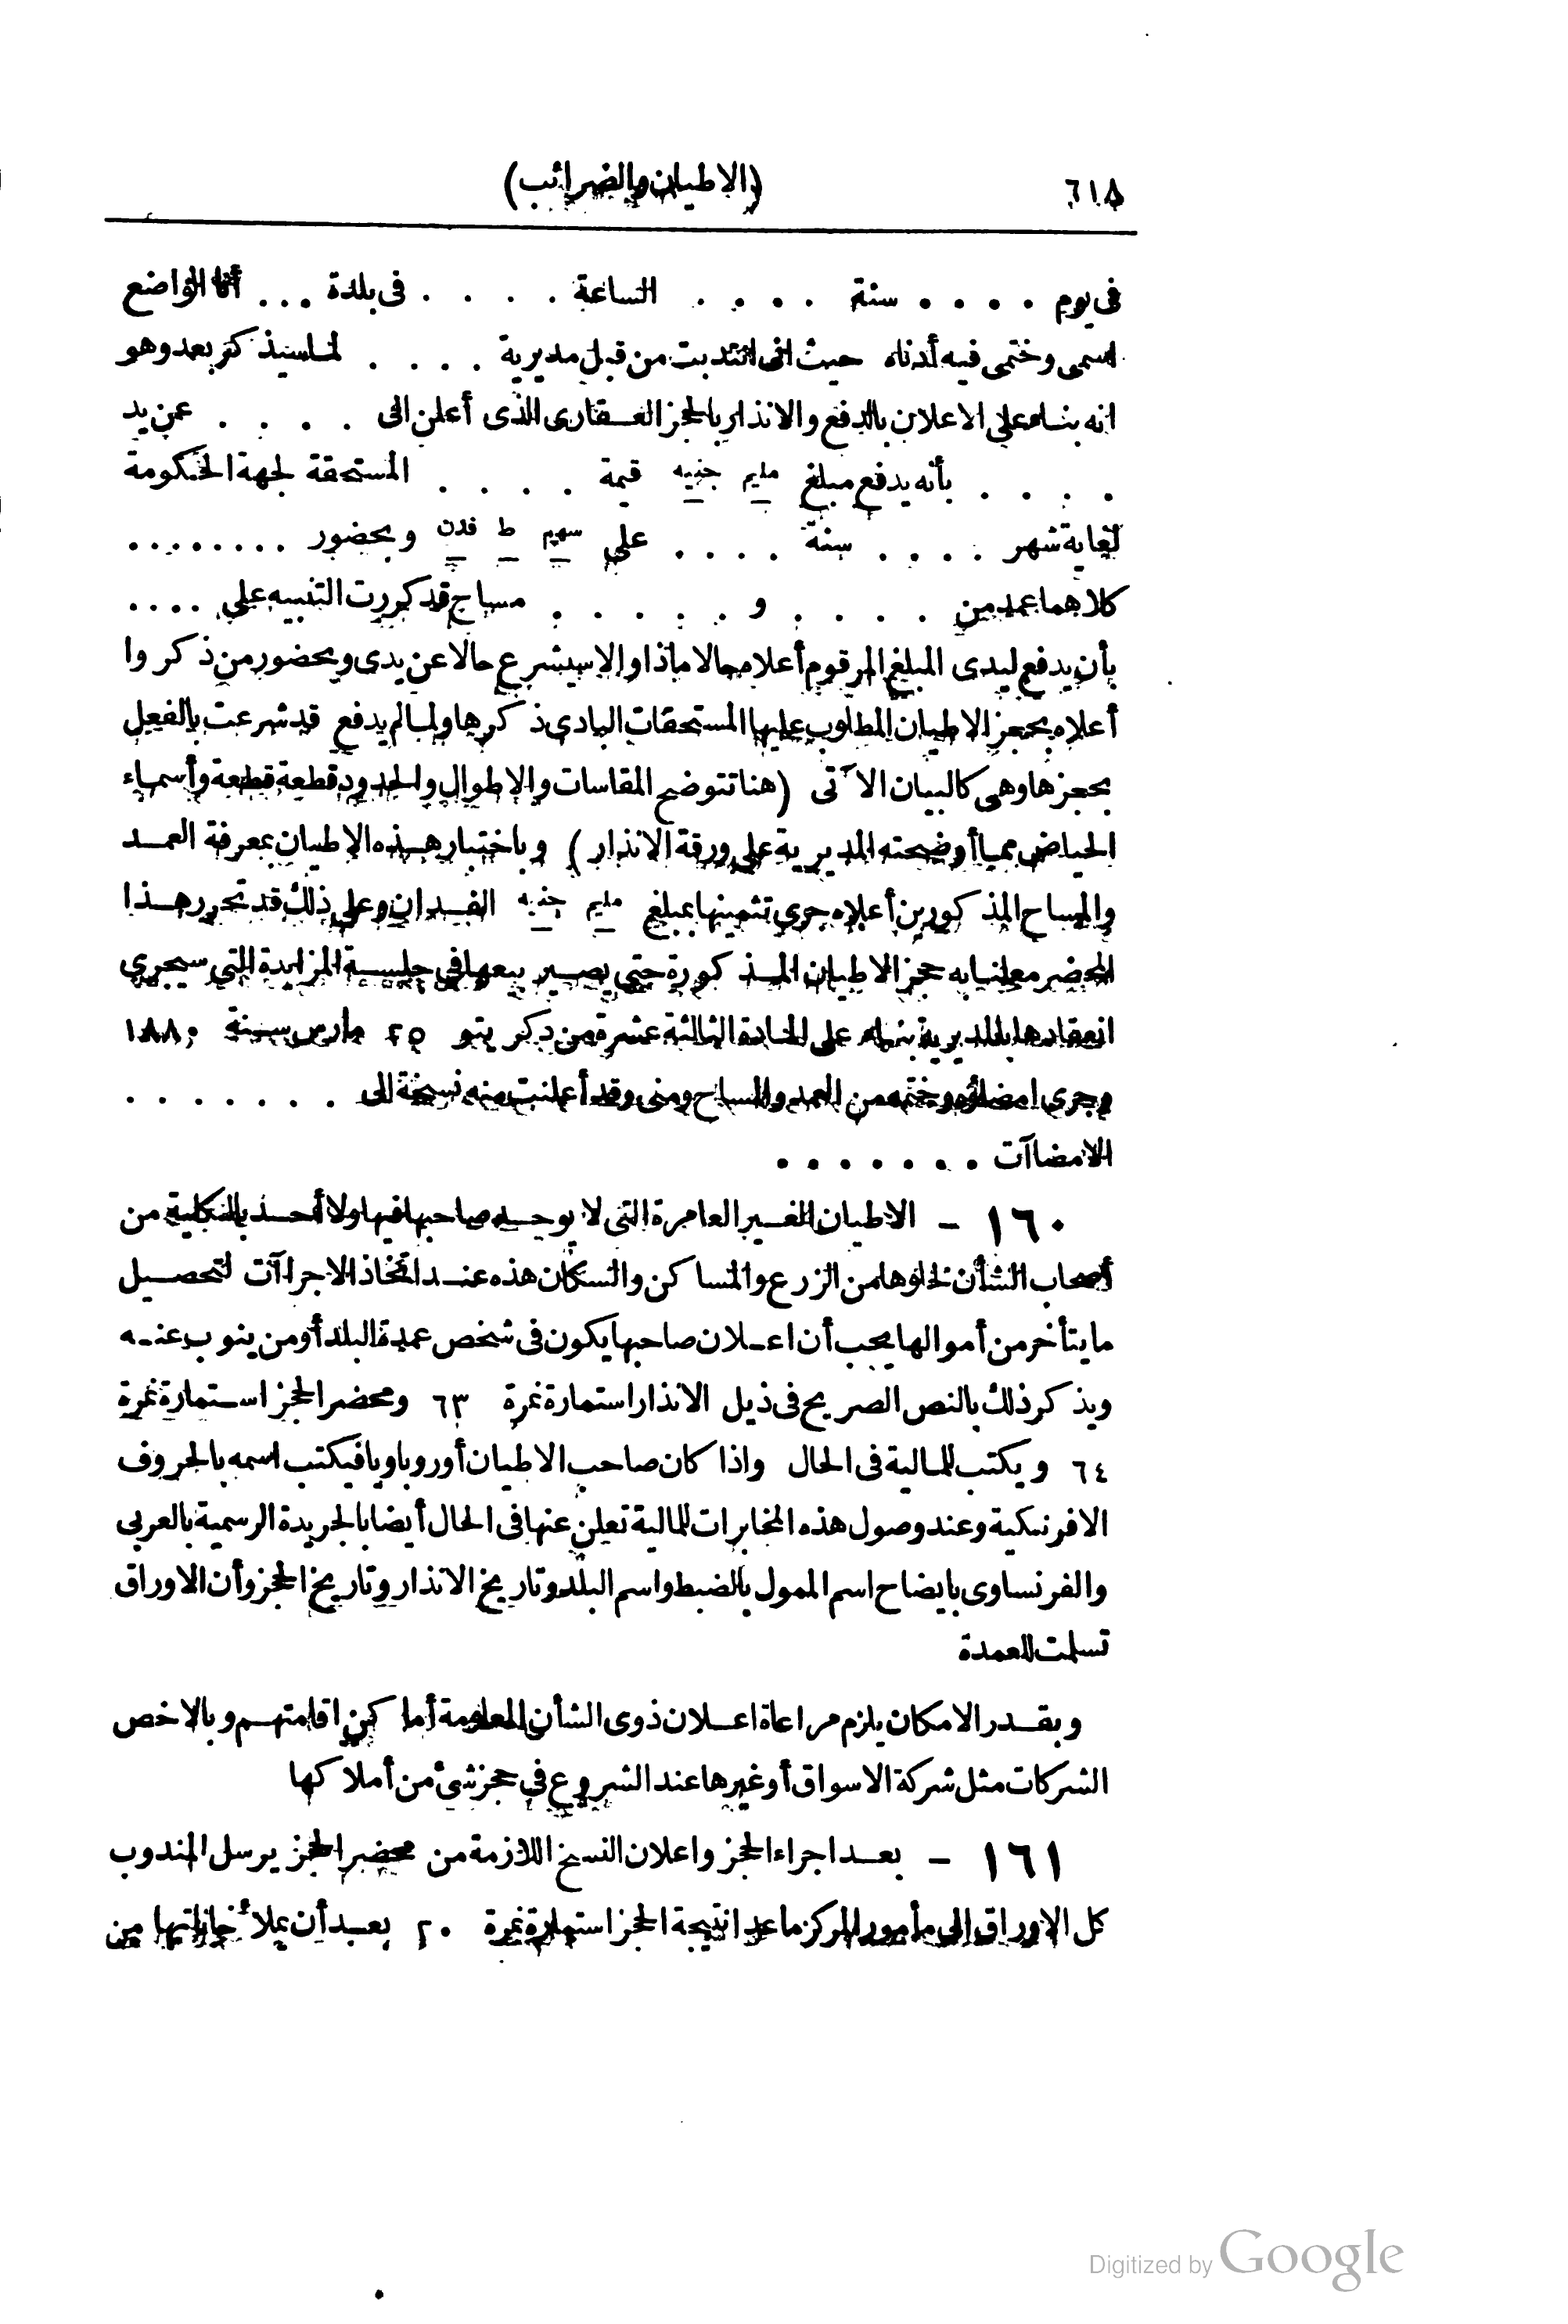 ٦١٨
(الاطيان والضرائب)
فى يوم . . . . سنة . . . . الساعة . . . . فى بلدة ... أنا الواضع
اسمى وختمى فيه أدناه حيث انى انتدبت من قبل مديرية . . . . لما سيذكر بعد وهو
انه بناء على الاعلان بالدفع والانذار بالحجز العقارى الذى أعلن الى . . . . عن يد
. . . . بأنه يدفع مبلغ مليم جنيه قيمة . . . . المستحقة لجهة الحكومة
لغاية شهر . . . . سنة . . . . على سهم ط فدن وبحضور ........
كلاهما عمد من . . . . و . . . . . مساح قد كررت التنبيه على ....
بأن يدفع ليدى المبلغ المرقوم أعلاه حالا ماذا والا سيشرع حالا عن يدى وبحضور من ذكروا
أعلاه بحجز الاطيان المطلوب عليها المستحقات البادى ذكرها ولما لم يدفع قد شرعت بالفعل
بحجزها وهى كالبيان الآتى (هنا تتوضح المقاسات والاطوال والحدود قطعة قطعة وأسماء
الحياض مما أوضحته المديرية على ورقة الانذار) وباختبار هذه الاطيان بمعرفة العمد
والمساح المذكورين أعلاه جرى تثمينها بمبلغ مليم جنيه الفدان وعلى ذلك قد تحرر هذا
المحضر معلنا به حجز الاطيان المذكورة حتى يصير بيعها فى جلسة المزايدة التى سيجرى
انعقادها بالمديرية بناء على المادة الثالثة عشرة من دكريتو ٢٥ مارس سنة ١٨٨٠
وجرى امضاؤه وختمه من العمد والمساح ومنى وقد أعلنت منه نسخة الى . . . . . . . .
الامضاآت . . . . . . .
١٦٠ - الاطيان الغير العامرة التى لا يوجد صاحبها فيها ولا أحد بالكلية من
أصحاب الشأن لخلوها من الزرع والمساكن والسكان هذه عند اتخاذ الاجراآت لتحصيل
ما يتأخر من أموالها يجب أن اعلان صاحبها يكون فى شخص عمدة البلد أو من ينوب عنه
ويذكر ذلك بالنص الصريح فى ذيل الانذار استمارة نمرة ٦٣ ومحضر الحجز استمارة نمرة
٦٤ ويكتب للمالية فى الحال واذا كان صاحب الاطيان أوروباويا فيكتب اسمه بالحروف
الافرنكية وعند وصول هذه المخابرات للمالية تعلن عنها فى الحال أيضا بالجريدة الرسمية بالعربى
والفرنساوى بايضاح اسم الممول بالضبط واسم البلد وتاريخ الانذار وتاريخ الحجز وأن الاوراق
تسلمت للعمدة
وبقدر الامكان يلزم مراعاة اعلان ذوى الشأن المعلومة أماكن اقامتهم وبالاخص
الشركات مثل شركة الاسواق أو غيرها عند الشروع فى حجز شئ من أملاكها
١٦١ - بعد اجراء الحجز واعلان النسخ اللازمة من محضر الحجز يرسل المندوب
كل الاوراق الى مأمور المركز ماعدا نتيجة الحجز استمارة نمرة ٢٠ بعد أن يملأ خاناتها من
Digitized by Google